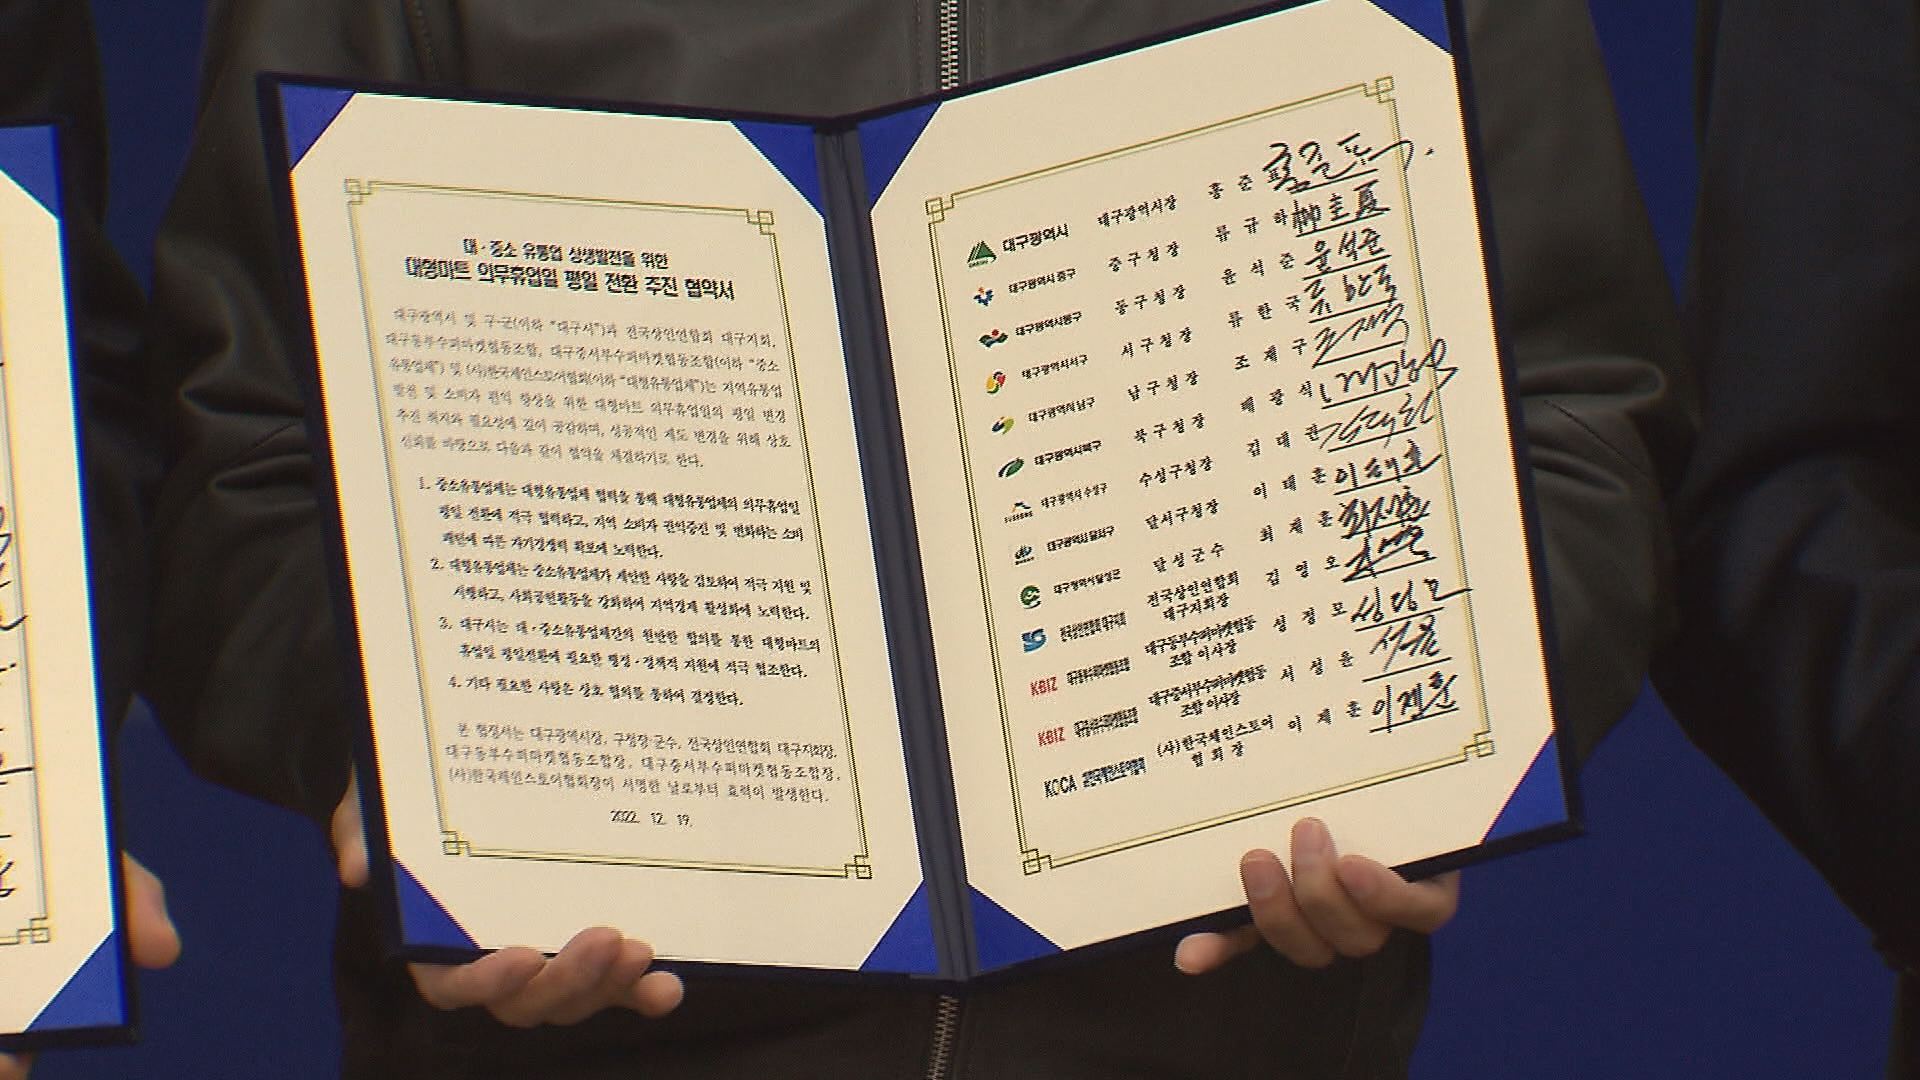 대·중소 유통업 상생발전을 위한
대형마트 의무휴업일 평일 전환 추진 협약서
대구광역시 및 구·군(이하 "대구시")과 전국상인연합회 대구지회,
대구동부수퍼마켓협동조합, 대구중서부수퍼마켓협동조합(이하 "중소
유통업체") 및 (사)한국체인스토어협회(이하 "대형유통업체")는 지역유통업
발전 및 소비자 편익 향상을 위한 대형마트 의무휴업일의 평일 변경
추진 취지와 필요성에 깊이 공감하며, 성공적인 제도 변경을 위해 상호
신뢰를 바탕으로 다음과 같이 협약을 체결하기로 한다.
1. 중소유통업체는 대형유통업체 협력을 통해 대형유통업체의 의무휴업일
평일 전환에 적극 협력하고, 지역 소비자 권익증진 및 변화하는 소비
패턴에 따른 자기경쟁력 확보에 노력한다.
2. 대형유통업체는 중소유통업체가 제안한 사항을 검토하여 적극 지원 및
시행하고, 사회공헌활동을 강화하여 지역경제 활성화에 노력한다.
3. 대구시는 대·중소유통업체간의 원만한 합의를 통한 대형마트의
휴업일 평일전환에 필요한 행정·정책적 지원에 적극 협조한다.
4. 기타 필요한 사항은 상호 협의를 통하여 결정한다.
본 협정서는 대구광역시장, 구청장·군수, 전국상인연합회 대구지회장,
대구동부수퍼마켓협동조합장, 대구중서부수퍼마켓협동조합장,
(사)한국체인스토어협회장이 서명한 날로부터 효력이 발생한다.
2022. 12. 19.
대구광역시 대구광역시장 홍 준
대구광역시 중구 중구청장 류 규 하 柳圭夏
대구광역시동구 동구청장 윤 석 준 윤석준
대구광역시서구 서구청장 류 한 국 류한국
대구광역시 남구 남구청장 조 재 구
대구광역시북구 북구청장 배 광 식
대구광역시 수성구 수성구청장 김 대 권
대구광역시 달서구 달서구청장 이 태 훈 이태훈
대구광역시달성군 달성군수 최 재 훈 최재훈
전국상인연합회 대구지회 전국상인연합회 대구지회장 김 영 오
KBIZ 대구동부수퍼마켓협동 조합 이사장 성 정 모 성정모
KBIZ 대구중서부수퍼마켓협동 조합 이사장 서 성 윤
KOCA (사)한국체인스토어 협 회 장 이 제 훈 이제훈